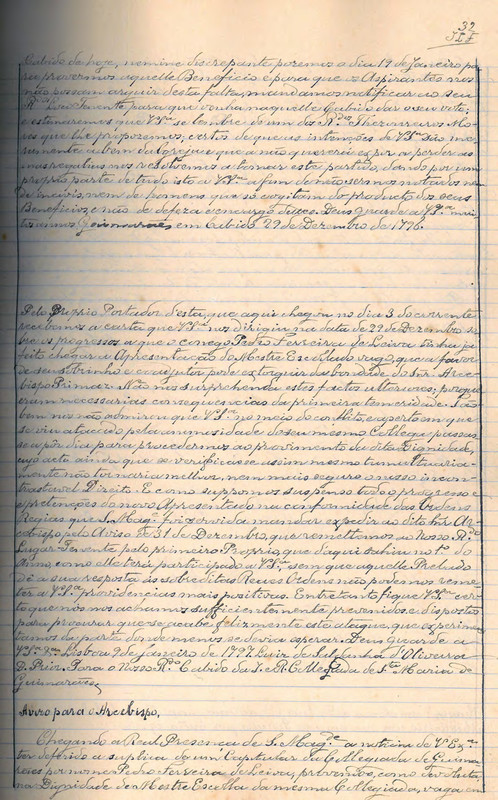 39
Cabido de hoje, nemine discrepante pozemos o dia 19 de Janeiro pa-
ra provermos aquelle Beneficio e para que os Aspirantes nos
não possam arguir desta falta, mandamos notificar ao seu
R.do Lugar Tenente para que venha naquelle Cabido dar o seu voto;
e estimaremos que V.S.a se lembre de um dos R.dos Thezoureiros Mo-
res que lhe propozemos, certos de que as intenções de V.S.a são me-
ramente a bem da Igreja que a não quererá expor a perder as
suas regalias nos resolvemos a tomar este partido, dando por um
proprio parte de tudo isto a V.S.a afim de não sermos notados nem
de inuteis, nem de homens que só cogitam do producto dos seus
Beneficios, e não de defeza e conservação delles. Deus guarde a V.S.a mui-
tos annos Guimarães, em Cabido 29 de Dezembro de 1796.
Pelo Proprio Portador desta, que aqui chegou no dia 3 do corrente
recebemos a carta que V.S.a nos dirigiu na data de 29 de Dezembro so-
bre os progressos a que o conego Pedro Ferreira de Leiva tinha ja
feito chegar a Apresentação do Mestre Escolado vago, que a favor
de seu sobrinho e coadjutor pode extorquir da bondade do Snr. Arce-
bispo Primaz. Não nos surprehendem estes factos ulteriores, porque
eram necessarias consequencias da primeira temeridade. Tão
bem nos não admirou que V.S.a no meio do conflito, e aperto em que
se viu atacado pela animosidade do seu mesmo Collega passas-
se a pôr dia para procedermos ao provimento da dita Dignidade,
cujo acto ainda que se verificasse assim mesmo tumultuaria-
mente não tornaria melhor, nem mais seguro o nosso incon-
trastavel Direito. E como suppomos suspenso todo o progresso e
pretenções do novo Apresentado na conformidade das Ordens
Regias que S. Mag.e foi servida mandar expedir ao dito Snr. Ar-
cebispo pelo Aviso de 31 de Dezembro, que remettemos ao Nosso R.do
Lugar Tenente pelo primeiro Proprio, que daqui sahiu no 1.º do
Anno, como elle terá participado a V.S.a sem que aquelle Prelado
dê a sua resposta ás sobreditas Reaes Ordens não podemos reme-
ter a V.S.a providencias mais positivas. Entretanto fique V.S.a cer-
to que nós nos achamos sufficientemente prevenidos e dispostos
para procurar que se acabe felizmente este ataque, que experimen-
tamos da parte donde menos se devia esperar. Deus Guarde a
V.S.a Lisboa 9 de Janeiro de 1797. Luiz de Saldanha d'Oliveira
D. Prior. Para o Nosso R.do Cabido da I. e R. Collegiada de S.ta Maria de
Guimarães.
Aviso para o Arcebispo.
Chegando a Real Presença de S. Mag.de a noticia de V. Ex.a
ter deferido a suplica de um Capitular da Collegiada de Guima-
rães por nome Pedro Ferreira de Leiva, provendo, como seu
na Dignidade de Mestre Escolla da mesma Collegiada, vaga em